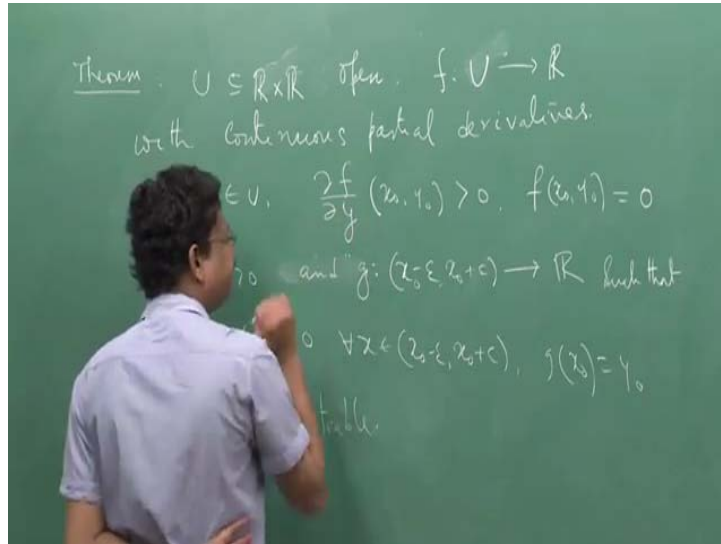 Theorem. U ⊆ ℝ×ℝ open. f: U → ℝ
with continuous partial derivatives.
∈ U, ∂f/∂y (x₀, y₀) > 0, f(x₀, y₀) = 0
>0 and g: (x₀-ε, x₀+ε) → ℝ such that
0 ∀x ∈ (x₀-ε, x₀+ε), g(x₀) = y₀